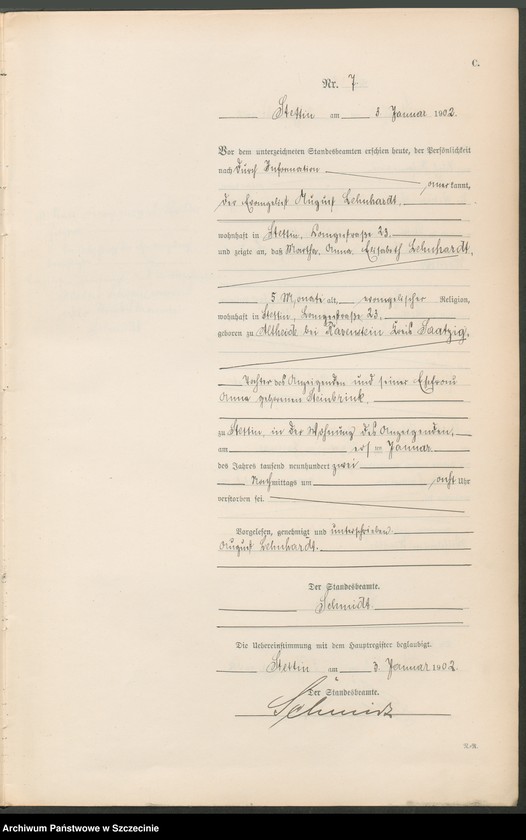 C.
Nr. 7
Stettin am 3 Januar 1902.
Vor dem unterzeichneten Standesbeamten erschien heute, der Persönlichkeit
nach durch Information
kannt,
der August Lehnhardt.
wohnhaft in Stettin, 23.
und zeigte an, daß Martha Anna Elisabeth Lehnhardt,
5 Monate alt, evangelischer Religion,
wohnhaft in Stettin, 23.
geboren zu Altheide bei Ravenstein Kreis Saatzig,
Tochter des Anzeigenden und seiner Ehefrau
Anna geborenen Steinbrink.
zu Stettin, in der Wohnung des Anzeigenden,
am ten Januar
des Jahres tausend neunhundert zwei
Nachmittags um acht Uhr
verstorben sei.
Vorgelesen, genehmigt und unterschrieben
August Lehnhardt.
Der Standesbeamte.
Schmidt
Die Uebereinstimmung mit dem Hauptregister beglaubigt.
Stettin am 3. Januar 1902
Der Standesbeamte.
Schmidt
Archiwum Państwowe w Szczecinie